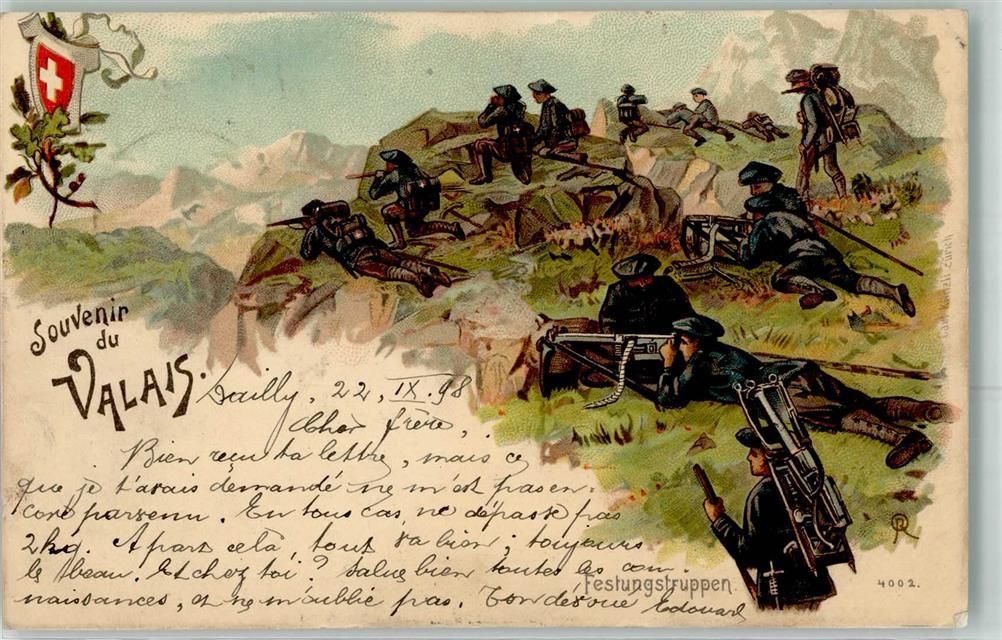 Souvenir
du
VALAIS.
Dailly, 22. IX. 98
Cher frère,
Bien reçu ta lettre, mais ce
que je t'avais demandé ne m'est pas en-
core parvenu. En tous cas, ne dépasse pas
2kg. A part cela, tout va bien; toujours
le beau. Et chez toi? Salue bien toutes les con-
naissances, et ne m'oublie pas. Ton dévoué Edouard
Festungstruppen.
4002.